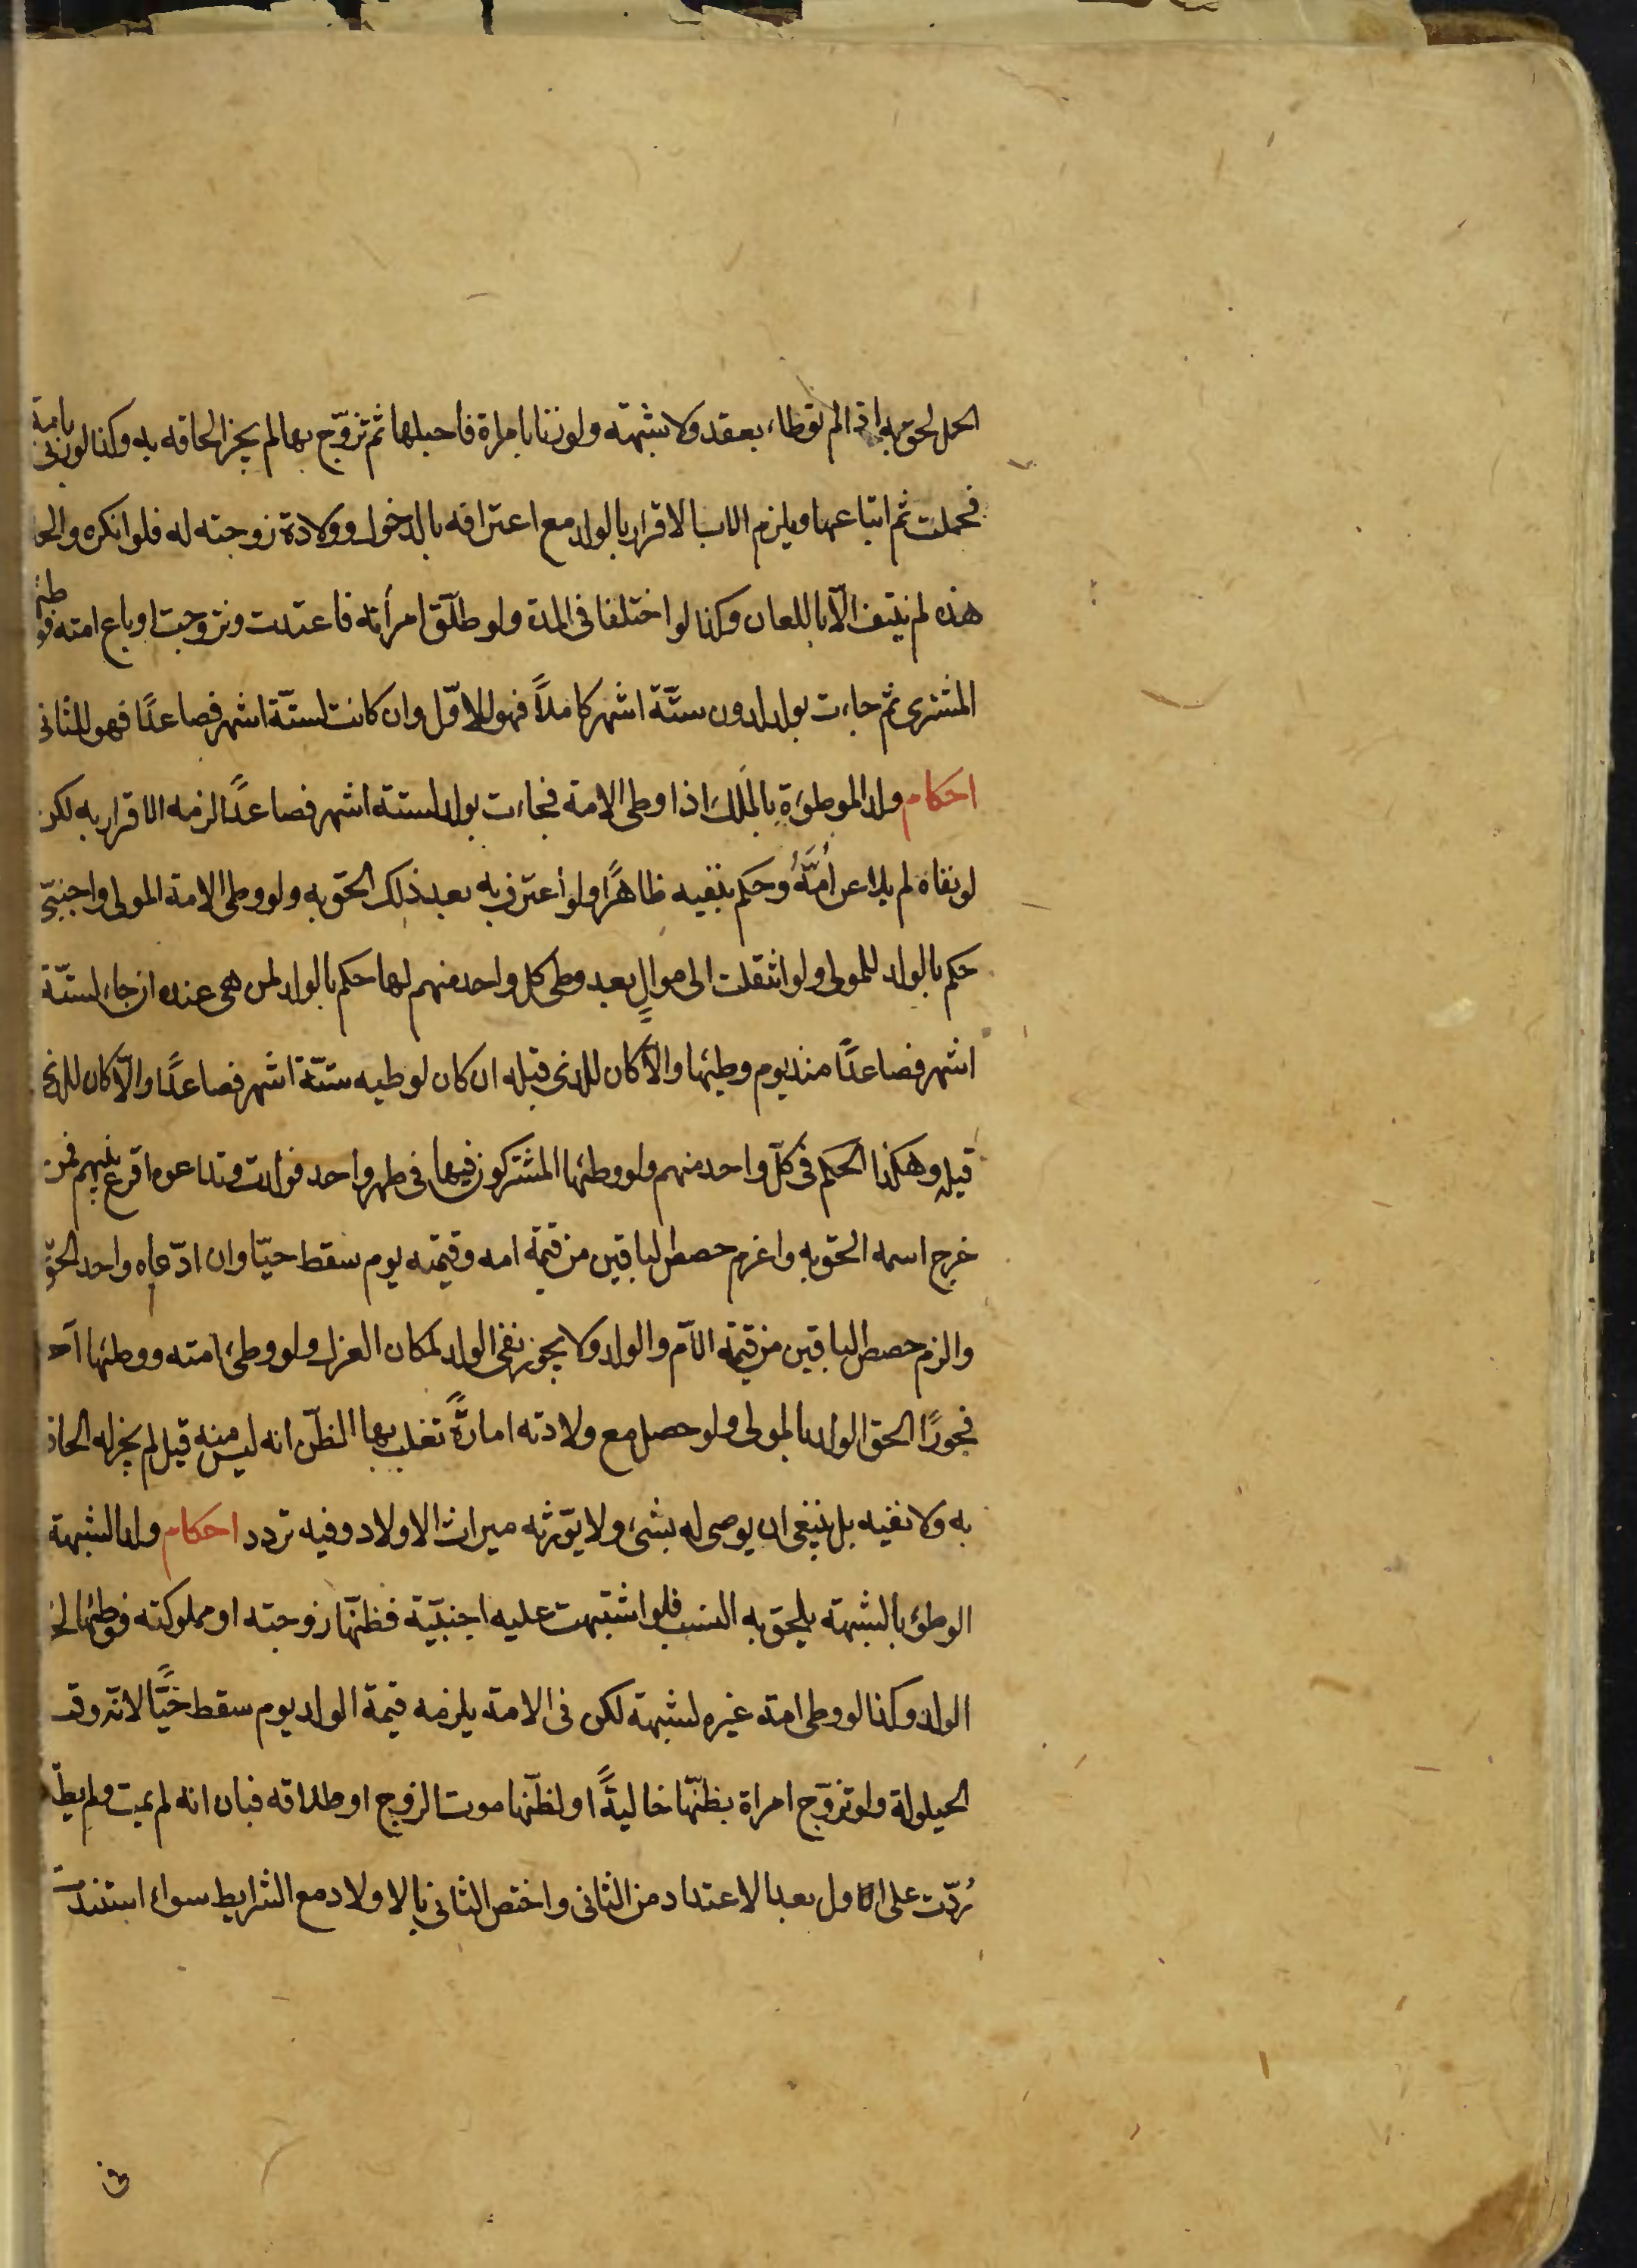 الحمل لحق به اذا لم توطاء بعقد ولا شبهة ولو زنا بامراة فاحبلها ثم تزوّج بها لم يجز الحاقه به وكذا لو زنى بامة
فحملت ثم ابتاعها ويلزم الاب الاقرار بالولد مع اعترافه بالدخول وولادة زوجته له فلو انكره والحا
هذه لم ينتف الّا باللعان وكذا لو اختلفا فى المدة ولو طلّق امرأته فاعتدت وتزوجت او باع امته فوطئها
المشترى ثم جاءت بولد لدون ستّة اشهر كاملاً فهو للاوّل وان كانت لستّة اشهر فصاعدًا فهو للثانى
احكام ولد الموطوءة بالملك اذا وطى الامة فجاءت بولد لستة اشهر فصاعدًا لزمه الاقرار به لكن
لو نفاه لم يلاعن اُمَّهُ وحكم بنفيه ظاهرًا ولو أعترف به بعد ذلك الحق به ولو وطى الامة المولى واجنبىّ
حكم بالولد للمولى ولو انتقلت الى موالٍ بعد وطى كل واحد منهم لها حكم بالولد لمن هى عنده ان جاء لستّة
اشهر فصاعدًا منذ يوم وطيئها والّا كان للذى قبله ان كان لوطيه ستّة اشهر فصاعدًا والّا كان للذى
قبله وهكذا الحكم فى كلّ واحد منهم ولو وطئها المشتركون فيها فى طهر واحد فولدت وتداعوه اقرع بينهم فمن
خرج اسمه الحق به واغرم حصص الباقين من قيمة امه وقيمته يوم سقط حيّا وان ادّعاه واحد الحق
والزم حصص الباقين من قيمة الامّ والولد ولا يجوز نفى الولد لمكان العزل ولو وطئ امته ووطئها آخر
فجورًا الحق الولد بالمولى ولو حصل مع ولادته امارةً تغلب بها الظنّ انه ليس منه قيل لم يجز له الحاق
به ولا نفيه بل ينبغى ان يوصى له بشئ ولا يوّرثه ميراث الاولاد وفيه تردد احكام ولد الشبهة
الوطؤ بالشبهة يلحق به النسب فلو اشتبهت عليه اجنبيّة فظنّها زوجته او مملوكته فوطئها لحق
الولد وكذا لو وطى امة غيره لشبهة لكن فى الامة يلزمه قيمة الولد يوم سقط حيًّا لانّه وقت
الحيلولة ولو تزوّج امراة بظنّها خاليةً او لظنّها موت الزوج او طلاقه فبان انه لم يمت ولم يطلّ
رُدّت على الاول بعد الاعتداد من الثانى واختص الثانى بالاولاد مع الشرايط سواء استندت